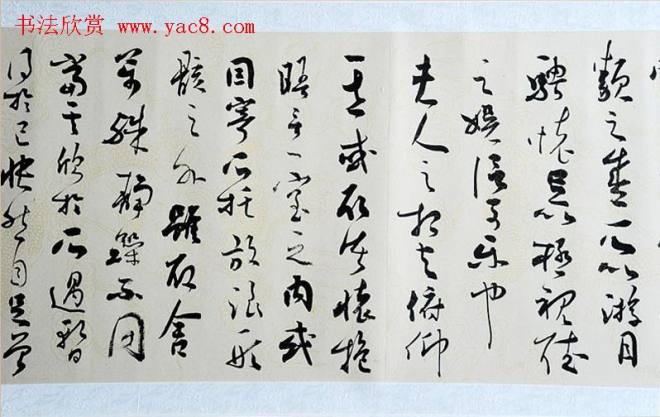 书法欣赏 www.yac8.com
類之盛所以游目
騁懷足以極視聽
之娛信可樂也
夫人之相與俯仰
一世或取諸懷抱
晤言一室之內或
因寄所托放浪形
骸之外雖取舍
萬殊靜躁不同
當其欣於所遇暫
得於己快然自足曾